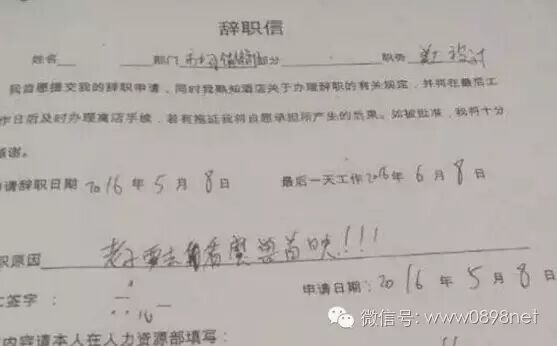 辞职信
姓名 部门 市场营销部 部分 职务 美工设计
我自愿提交我的辞职申请,同时我熟知酒店关于办理辞职的有关规定,并将在最后工
作日后及时办理离店手续,若有拖延我将自愿承担所产生的后果。如被批准,我将十分
感谢。
申请辞职日期 2016年5月8日 最后一天工作2016年6月8日
职原因 老子要去看魔兽首映!!!
签字: 申请日期:2016年5月8日
内容请本人在人力资源部填写:
微信号:www0898net